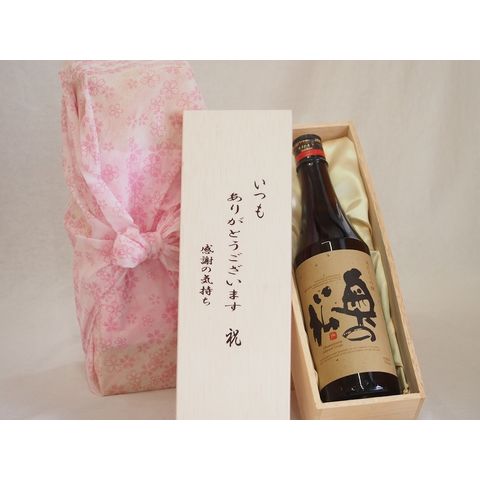 いつも
ありがとうございます 祝
感謝の気持ち
奥の
松